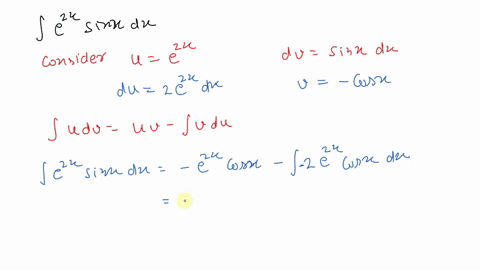 ∫ e^{2x} sinx dx
Consider u = e^{2x} dv = sinx dx
du = 2e^{2x} dx v = -cosx
∫ u dv = uv - ∫ v du
∫ e^{2x} sinx dx = - e^{2x} cosx - ∫ -2 e^{2x} cosx dx
=